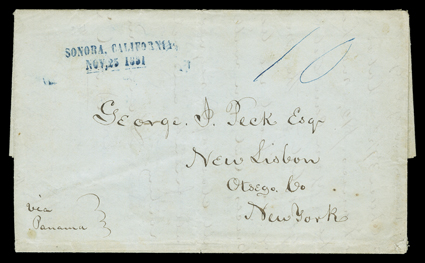 SONORA, CALIFORNIA
NOV, 25 1851
10
George. J. Peck Esq
New Lisbon
Otsego. Co
New York
via
Panama